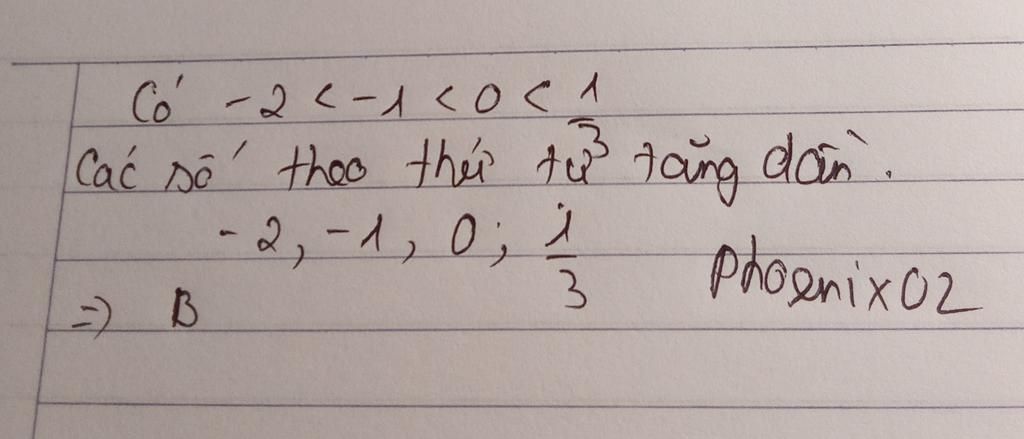 Có -2 < -1 < 0 < 1/3
Các số theo thứ tự tăng dần.
-2, -1, 0; 1/3
Phoenix02
=> B